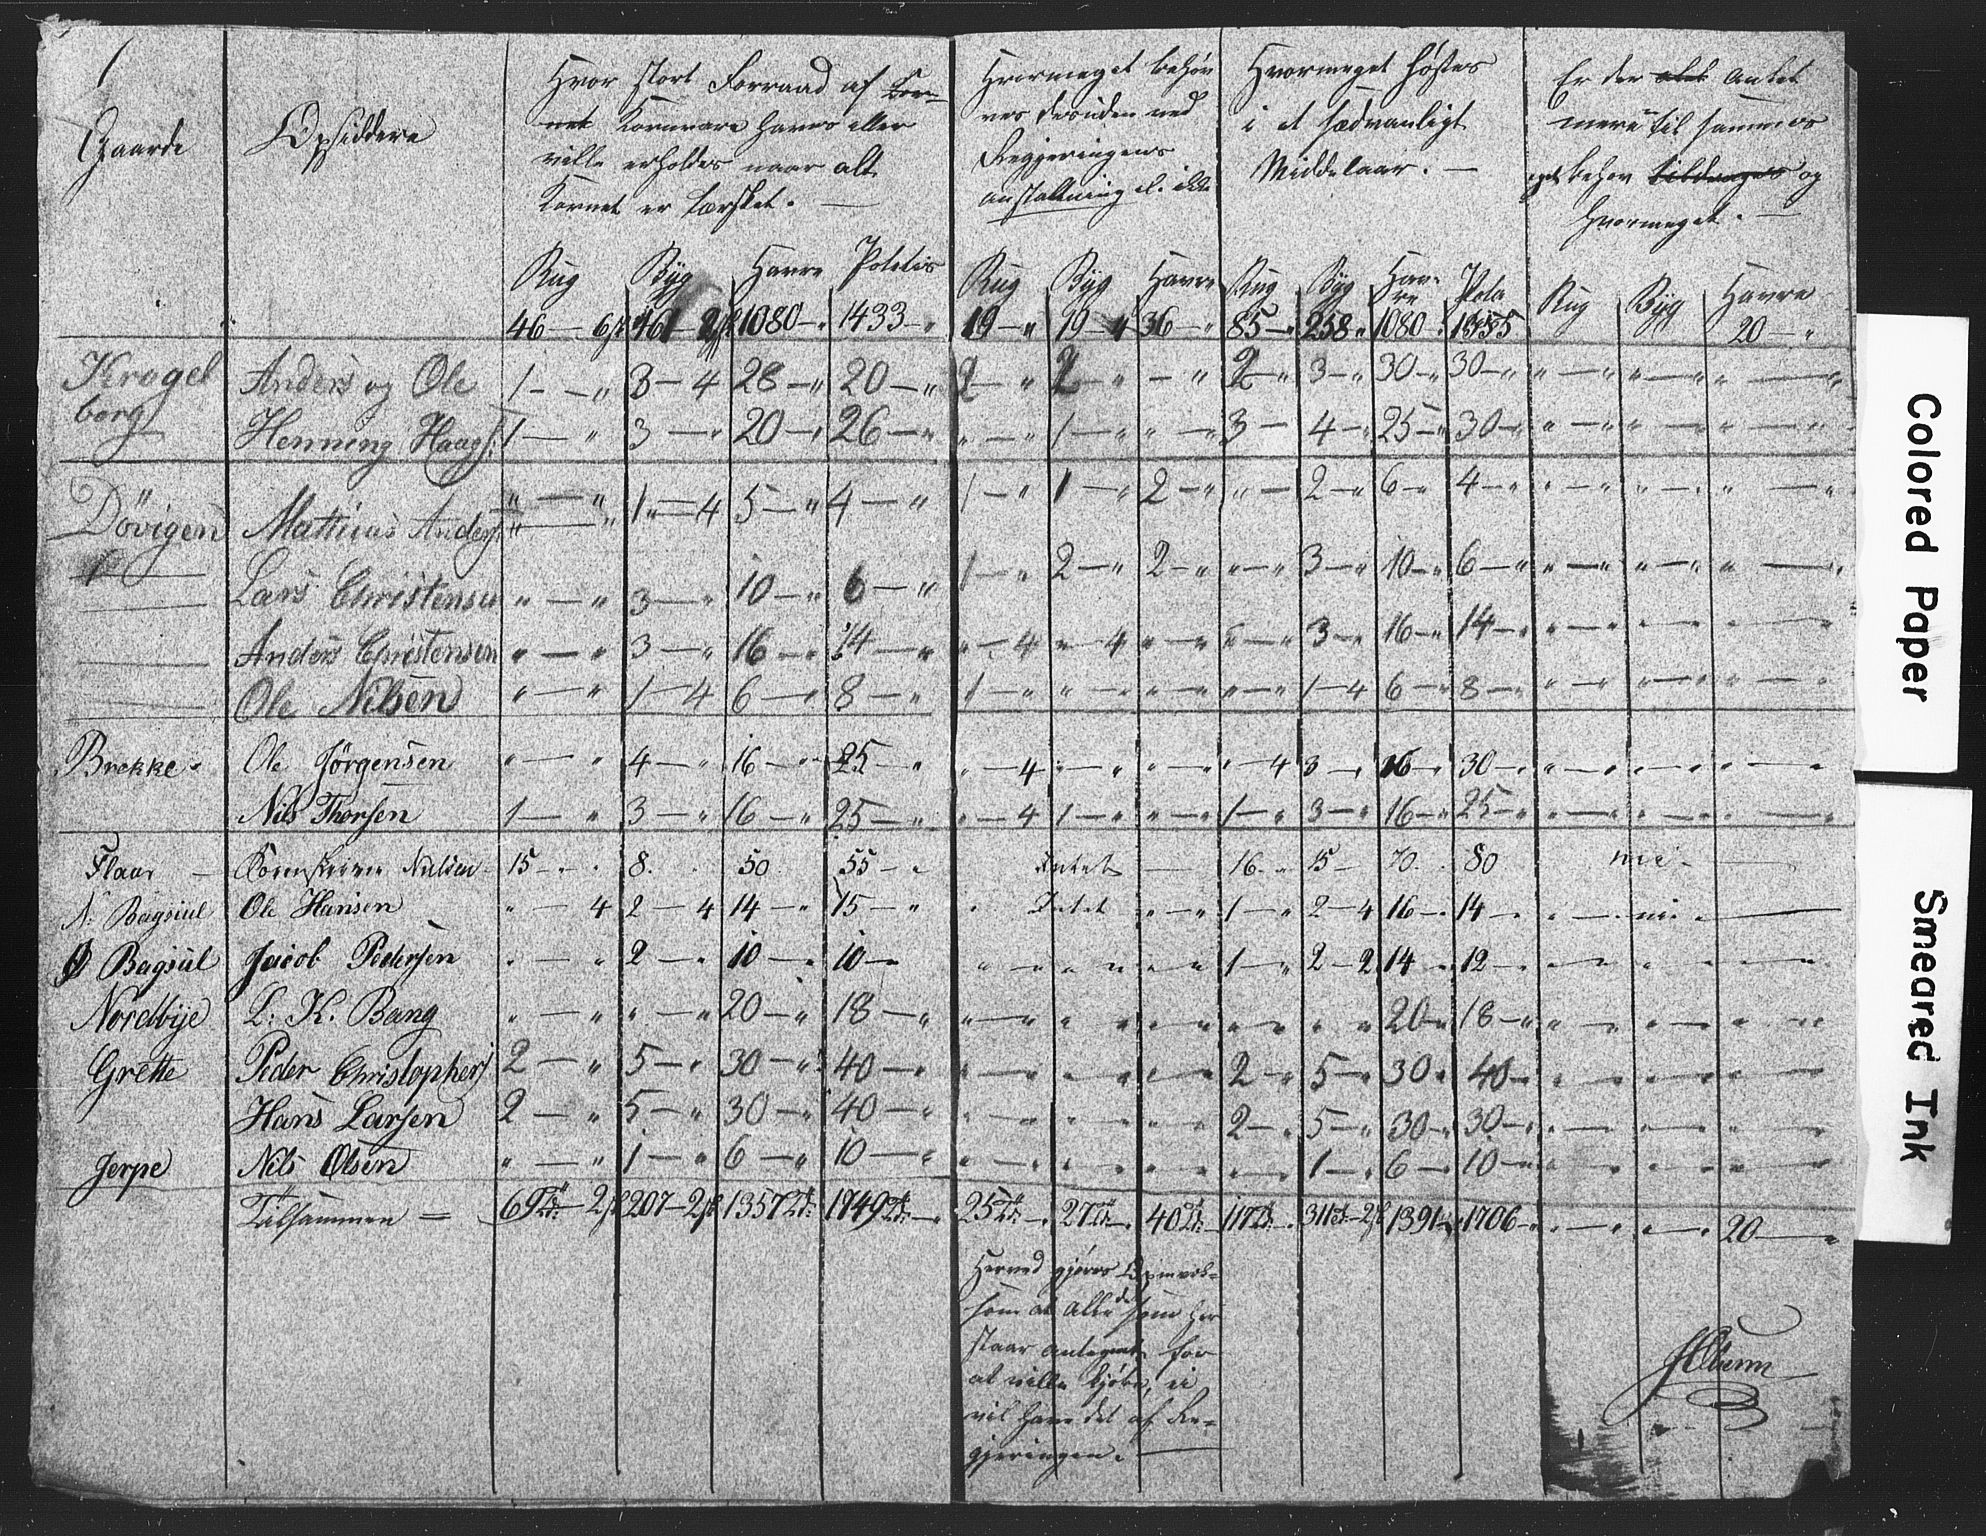 1
Gaarde
Opsiddere
Hvor stort Forraad af Kor-
net Kornvare haves eller
ville erholdes naar alt
Kornet er tærsket. —
Hvormeget behøv
ves desuden ved
Regjeringens
anstaltning el. ikke
Hvormeget høstes
i et sædvanligt
Middelaar. —
Er der alt antet
mere til sammes
behov og
hvormeget. —
Rug Byg Havre Potetis Rug Byg Havre Rug Byg Hav-
re Pota Rug Byg Havre
46 — 6 461 — 2 1080 — „ 1433 — „ 19 — „ 19 — „ 36 — „ 85 — „ 258 „ 1080 „ 1885 20 — „
Krogel
borg
Anders og Ole 1 — „ 3 — 4 28 — „ 20 — „ 2 — „ 2 — „ — „ 2 — „ 3 — „ 30 — „ 30 — „ „ — „ „ — „ „ — „
Henning Haags: 1 — „ 3 — „ 20 — „ 26 — „ „ — „ 1 — „ „ — „ 3 — 4 — „ 25 — „ 30 — „ „ — „ „ — „ „ — „
Dövigen Mathias Anders: „ — „ 1 — 4 5 — „ 4 — „ 1 — „ 1 — „ 2 — „ „ — 2 — „ 6 — „ 4 — „ „ — „ „ — „ „ — „
Lars Christensen „ — „ 3 — „ 10 — „ 6 — „ 1 — „ 2 — „ 2 — „ „ — „ 3 — „ 10 — „ 6 — „ „ — „ „ — „ „ — „
Anders Christensen „ — „ 3 — „ 16 — „ 14 — „ „ — 4 „ — 4 „ — „ „ — „ 3 — „ 16 — „ 14 — „ „ — „ „ — „ „ — „
Ole Nilsen „ — „ 1 — 4 6 — „ 8 — „ 1 — „ „ — „ „ — „ „ — „ 1 — 4 6 — „ 8 — „ „ — „ „ — „ „ — „
Brekke Ole Jörgensen „ — „ 4 — „ 16 — „ 25 — „ „ — 4 „ — „ „ — „ „ — 4 3 — „ 16 — „ 30 — „ „ — „ „ — „ „ — „
Nils Thorsen 1 — „ 3 — „ 16 — „ 25 — „ „ — 4 1 — „ „ — „ 1 — „ 3 — „ 16 — „ 25 — „ „ — „ „ — „ „ — „
Flaar — Nielsen 15 — „ 8 . . 50 55 — „ Intet — 16 . „ 15 — 70 . 80 nie —
N: Bagsiul Ole Hansen „ — 4 2 — 4 14 — „ 15 — „ „ Intet „ — „ 1 — „ 2 — 4 16 — „ 14 — „ „ — ni „ —
Bagsiul Jacob Pedersen „ — „ 2 — „ 10 — „ 10 — „ — „ „ — „ „ — „ 1 — „ 2 — 2 14 — „ 12 — „ „ — „ „ — „ „ — „
Nordbÿe L. K. Bang „ — „ „ — „ 20 — „ 18 — „ „ — „ „ — „ „ — „ „ — „ „ — „ 20 — „ 18 — „ „ — „ „ — „ „ — „
Grette Peder Christophers: 2 — „ 5 — „ 30 — „ 40 — „ „ — „ „ — „ „ — „ 2 — „ 5 — „ 30 „ 40 — „ „ — „ „ — „ „ — „
Hans Larsen 2 — „ 5 — „ 30 — „ 40 — „ „ — „ „ — „ „ — „ 2 — „ 5 — „ 30 — „ 30 — „ „ — „ „ — „ „ — „
Jerpe Nils Olsen „ — „ 1 — „ 6 — „ 10 — „ „ — „ „ — „ „ — „ „ — „ 1 — „ 6 — „ 10 — „ „ — „ „ — „ „ — „
Tilsammen = 69 Td: — 2 207 — 2 1357 Td: 1749 Td: — „ 25 Td: — „ 27 Td: — „ 40 Td: — 117 Td: „ 311 Td: — 2 1391 — „ 1706 — „ „ — „ „ — „ 20 — „
Herved gjøres Opmærk-
som at alle de som her
staar antegnet for
at ville kjøbe, ei
vil have det af Re-
gjeringen. —
Colored Paper
Smeared Ink